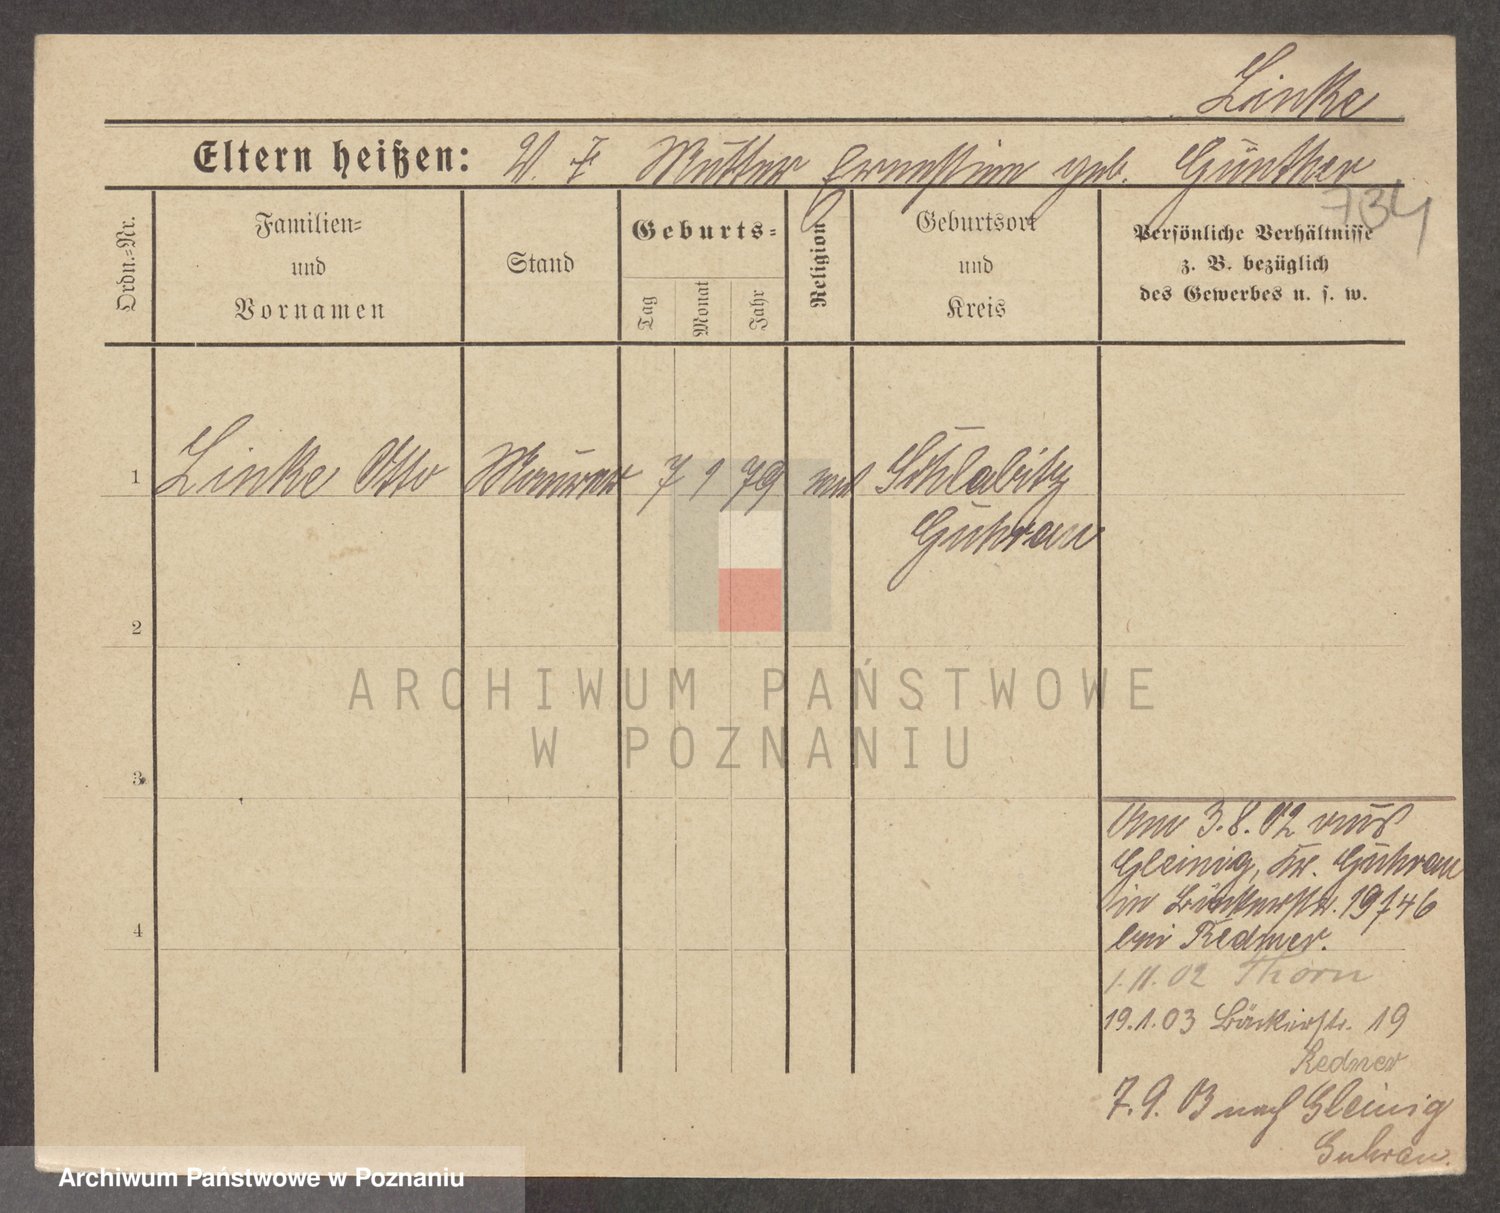 Linke
Eltern heißen: V. F. Mutter Ernestine geb. Günther
734
Ordn.-Nr.
Familien-
und
Vornamen
Stand
Geburts-
Tag
Monat
Jahr
Religion
Geburtsort
und
Kreis
Persönliche Verhältnisse
z. B. bezüglich
des Gewerbes u. s. w.
1 Linke Otto Maurer 7 1 79 Schlabitz
Guhrau
2
3
4
Am 3.8.02 aus
Gleinig, Kr. Guhrau
in Bäckerstr. 19
bei Redmer.
1.11.02 Thorn
19.1.03 Bäckerstr. 19
Redner
7.9.03 nach Gleinig
Guhrau.
ARCHIWUM PAŃSTWOWE
W POZNANIU
Archiwum Państwowe w Poznaniu